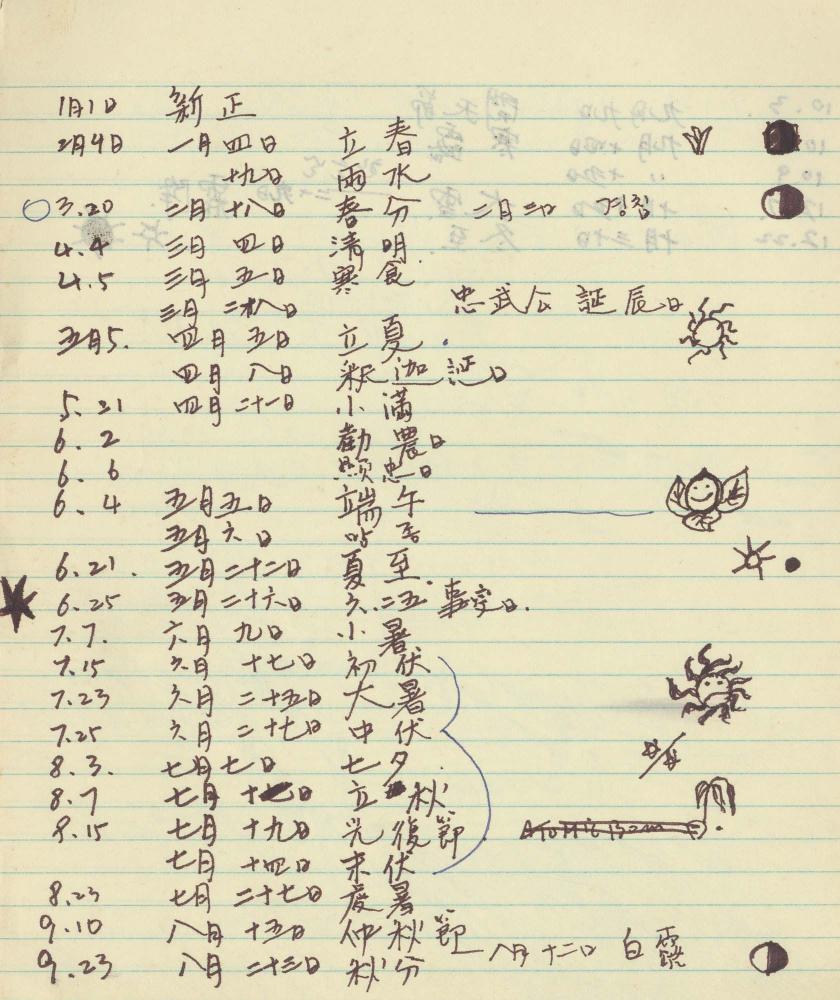 1月1日 新正
2月4日 一月四日 立春
十九日 雨水
3.20 二月十八日 春分 二月三日 경칩
4.4 三月四日 淸明
4.5 三月五日 寒食
三月二十八日 忠武公誕辰日
五月5. 四月五日 立夏
四月八日 釈迦誕日
5.21 四月二十一日 小滿
6.2 勸農日
6.6 顯忠日
6.4 五月五日 端午
五月六日
6.21. 五月二十二日 夏至
6.25 五月二十六日 六.二五事変日.
7.7. 六月九日 小暑
7.15 六月十七日 初伏
7.23 六月二十五日 大暑
7.25 六月二十七日 中伏
8.3. 七月七日 七夕.
8.7 七月十 日 立秋
8.15 七月十九日 光復節
七月十四日 末伏
8.23 七月二十七日 處暑
9.10 八月十五日 仲秋節 八月十二日 白露
9.23 八月二十三日 秋分